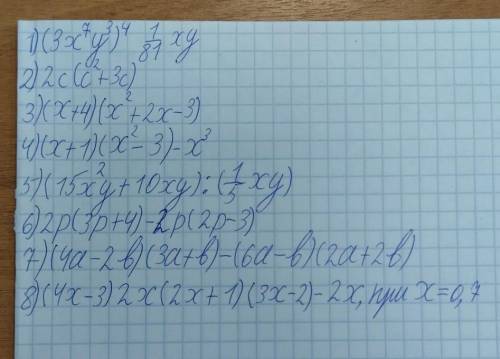 1)(3x⁷y³)⁴ 1/81 xy
2)2c(c²+3c)
3)(x+4)(x²+2x-3)
4)(x+1)(x²-3)-x³
5)(15x²y+10xy):(1/5 xy)
6)2p(3p+4)-2p(2p-3)
7)(4a-2b)(3a+b)-(6a-b)(2a+2b)
8)(4x-3)2x(2x+1)(3x-2)-2x, при x=0,7